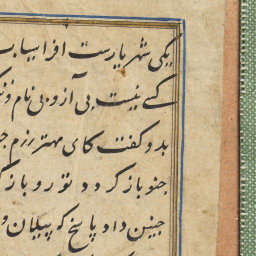 یکی شهریارست افراسیاب
کسی نیست بی آز و بی نام و ننگ
بدو گفت کای مهتر رزم
چنو بازگردد تو رو باز
چنین داد پاسخ که پیلان و